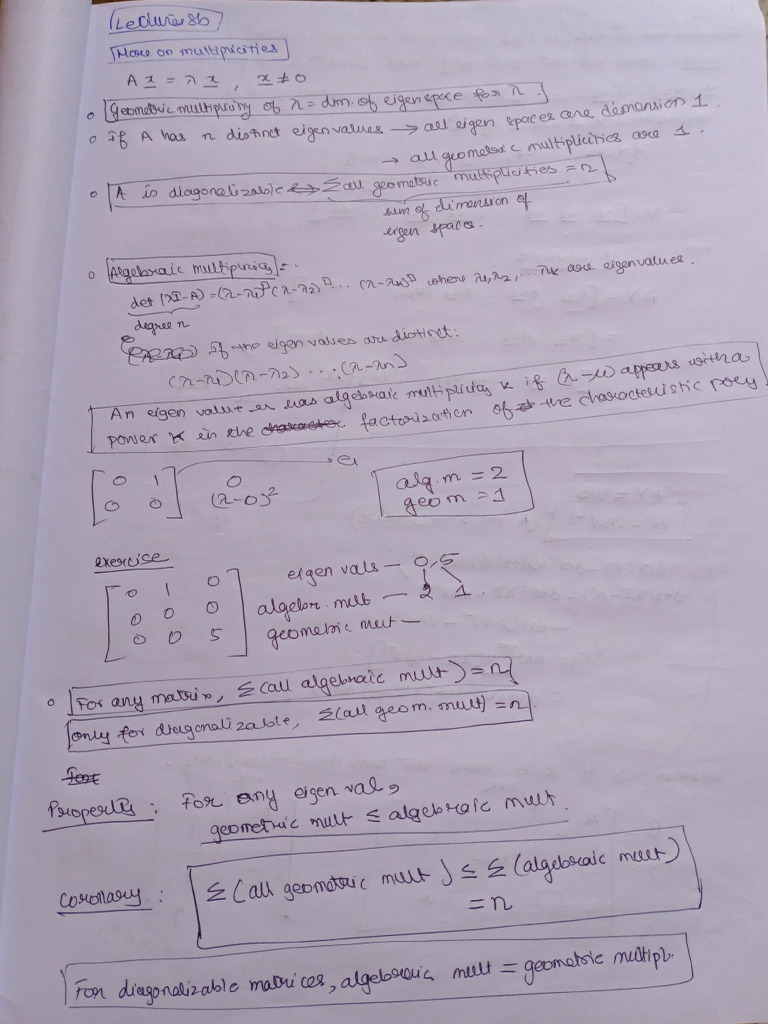 Lecture 8b
More on multiplicities
A x = λ x , x ≠ 0
Geometric multiplicity of λ = dim. of eigenspace for λ.
If A has n distinct eigenvalues → all eigen spaces are dimension 1.
→ all geometric multiplicities are 1.
A is diagonalizable ↔ Σ all geometric multiplicities = n
sum of dimension of
eigen spaces.
Algebraic multiplicity :-
det (λI-A) = (λ-λ1)^□ (λ-λ2)^□ ... (λ-λk)^□ where λ1, λ2, ... λk are eigenvalues.
degree n
If the eigen values are distinct:
(λ-λ1)(λ-λ2) ....(λ-λn)
An eigen value μ has algebraic multiplicity k if (λ-μ) appears with a
power k in the factorization of the characteristic poly
[0 1 0 alg.m = 2
0 0] (λ-0)² geo m = 1
exercise
[0 1 0 eigen vals — 0, 5
0 0 0 algebr. mult — 2 1.
0 0 5] geometric mult —
For any matrix, Σ (all algebraic mult) = n
only for diagonalizable, Σ(all geom. mult) = n
Property : For any eigen val,
geometric mult ≤ algebraic mult.
Coronary : Σ (all geometric mult) ≤ Σ (algebraic mult)
= n
For diagonalizable matrices, algebraic mult = geometric multipl.